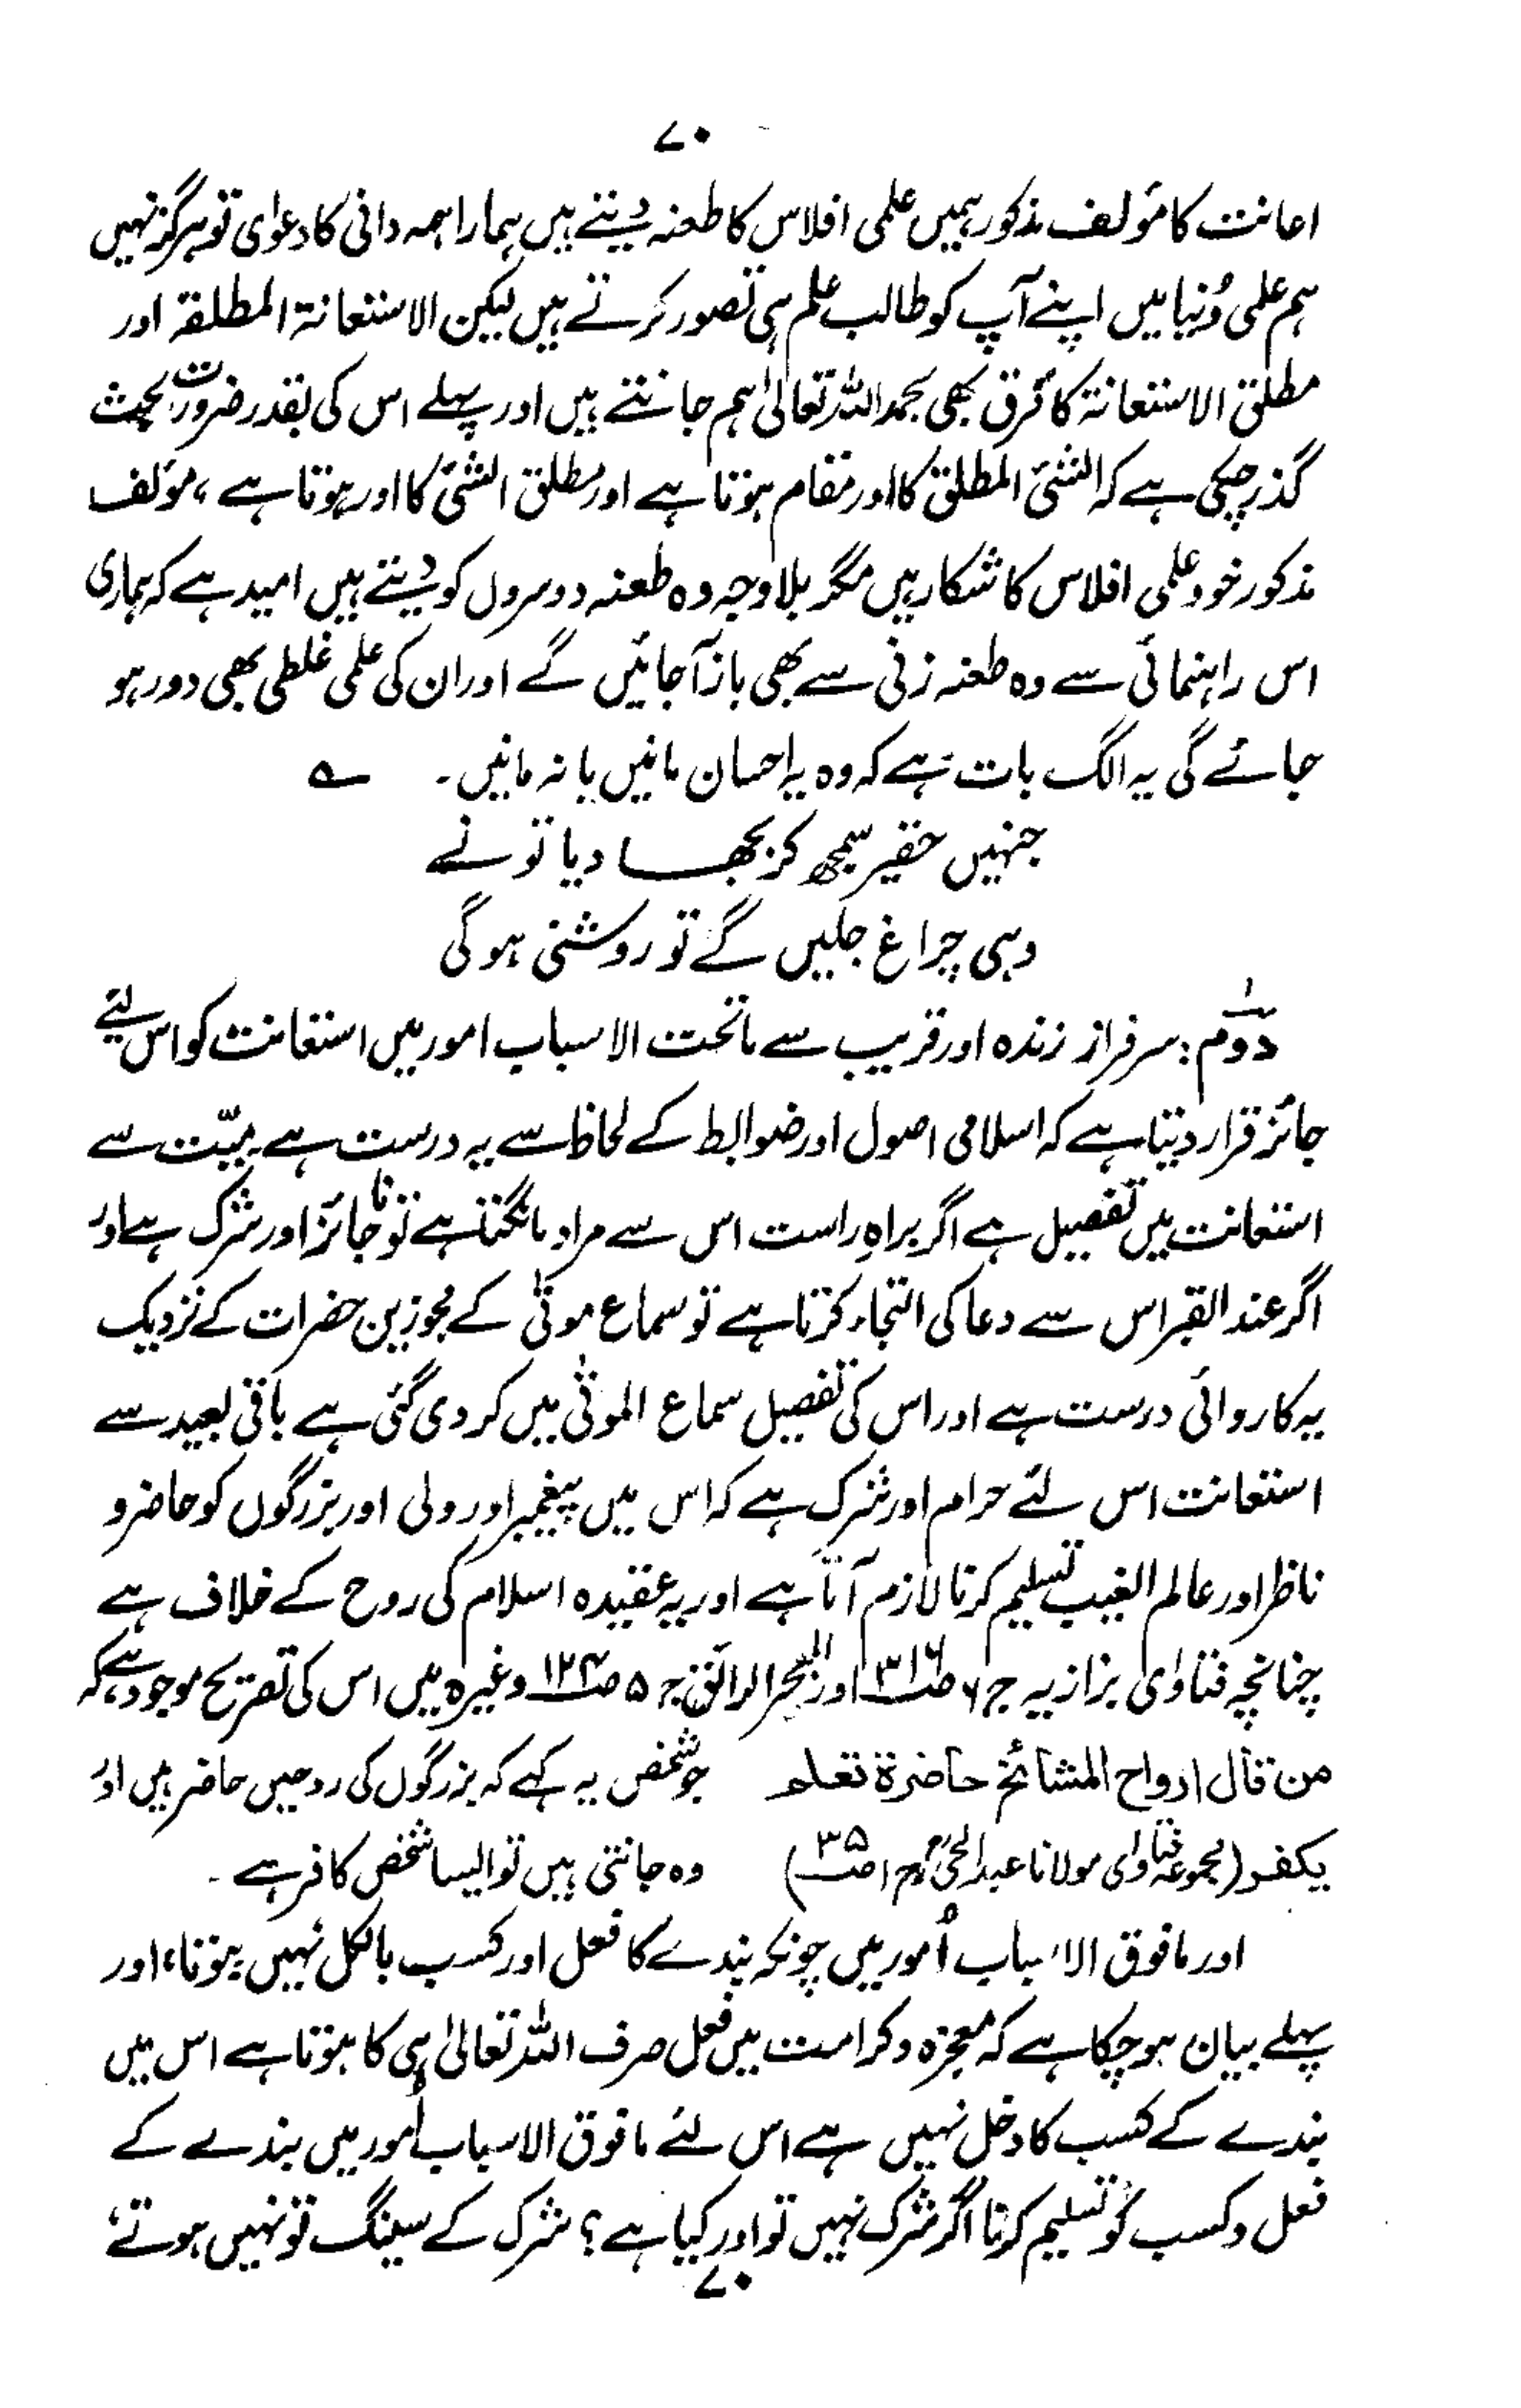 ۷۰
اعانت کا مؤلف مذکور ہمیں علمی افلاس کا طعنہ دیتے ہیں ہمارا ہمہ دانی کا دعوٰی تو ہرگز نہیں
ہم علمی دُنیا میں اپنے آپ کو طالب علم ہی تصور کرتے ہیں لیکن الاستعانۃ المطلقۃ اور
مطلق الاستعانۃ کا فرق بھی بحمد اللہ تعالیٰ ہم جانتے ہیں اور پہلے اس کی بقدر ضرورت بحث
گذر چکی ہے کہ الشئ المطلق کا اور مقام ہوتا ہے اور مطلق الشئ کا اور ہوتا ہے ، مؤلف
مذکور خود علمی افلاس کا شکار ہیں مگر بلاوجہ وہ طعنہ دوسروں کو دیتے ہیں امید ہے کہ ہماری
اس راہنمائی سے وہ طعنہ زنی سے بھی باز آجائیں گے اور ان کی علمی غلطی بھی دور ہو
جائے گی یہ الگ بات ہے کہ وہ یہ احسان مانیں یا نہ مانیں ۔ ؎
جنہیں حقیر سمجھ کر بجھا دیا تو نے
وہی چراغ جلیں گے تو روشنی ہوگی
دوّم : سرفراز زندہ اور قریب سے ماتحت الاسباب امور میں استعانت کو اس لئے
جائز قرار دیتا ہے کہ اسلامی اصول اور ضوابط کے لحاظ سے یہ درست ہے میّت سے
استعانت میں تفصیل ہے اگر براہِ راست اس سے مراد مانگتا ہے تو ناجائز اور شرک ہے اور
اگر عند القبر اس سے دعا کی التجاء کرتا ہے تو سماع موتٰی کے مجوزین حضرات کے نزدیک
یہ کاروائی درست ہے اور اس کی تفصیل سماع الموتٰی میں کر دی گئی ہے باقی بعید سے
استعانت اس لئے حرام اور شرک ہے کہ اس میں پیغمبر اور ولی اور بزرگوں کو حاضر و
ناظر اور عالم الغیب تسلیم کرنا لازم آتا ہے اور یہ عقیدہ اسلام کی روح کے خلاف ہے
چنانچہ فتاوٰی بزازیہ ج ۶ ص۳۱۶ اور البحر الرائق ج ۵ ص۱۲۴ وغیرہ میں اس کی تصریح موجود ہے، کہ
من قال ارواح المشائخ حاضرۃ تعلم جو شخص یہ کہے کہ بزرگوں کی روحیں حاضر ہیں اور
یکفر (مجموعہ فتاوٰی مولانا عبدالحیؒ م ج ۱ ص۳۵) وہ جانتی ہیں تو ایسا شخص کافر ہے ۔
اور مافوق الاسباب اُمور میں چونکہ بندے کا فعل اور کسب بالکل نہیں ہوتا، اور
پہلے بیان ہوچکا ہے کہ معجزہ وکرامت میں فعل صرف اللہ تعالیٰ ہی کا ہوتا ہے اس میں
بندے کے کسب کا دخل نہیں ہے اس لئے مافوق الاسباب اُمور میں بندے کے
فعل وکسب کو تسلیم کرنا اگر شرک نہیں تو اور کیا ہے ؟ شرک کے سینگ تو نہیں ہوتے،
۷۰